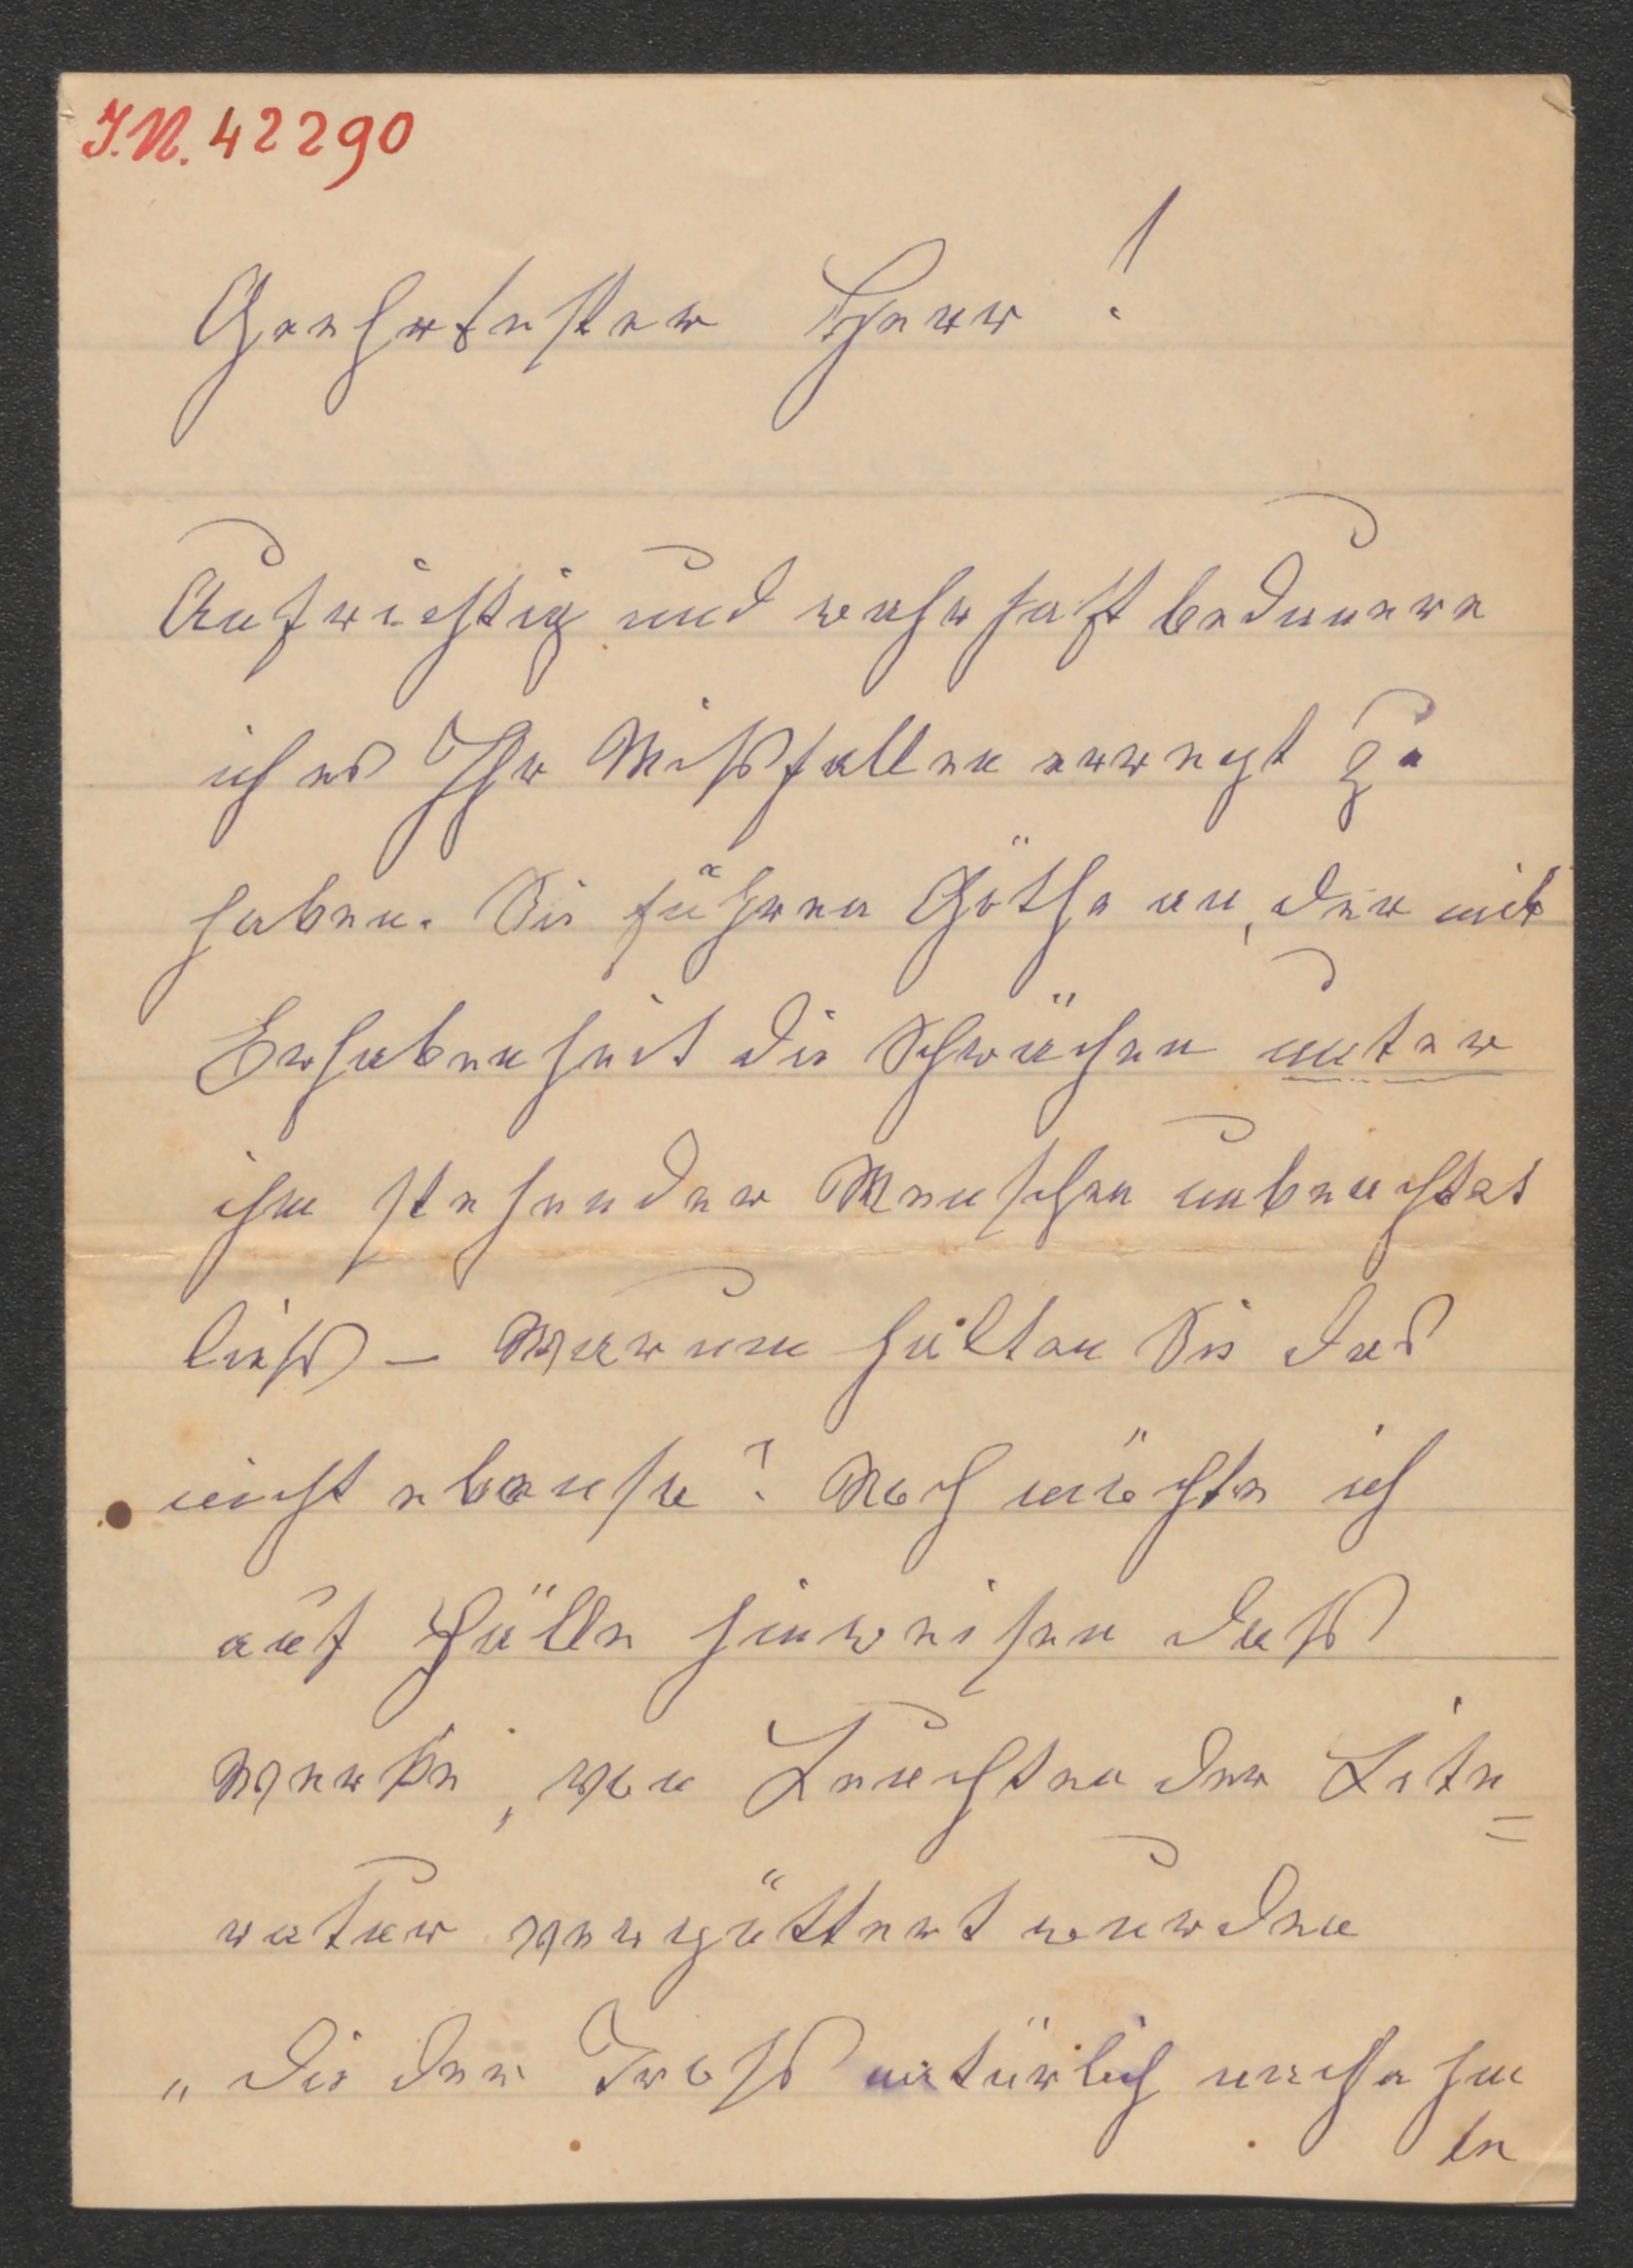 I.N. 42290
Geehrtester Herr!
Aufrichtig und wahrhaft bedauere
ich es Ihr Mißfallen erregt zu
haben. Sie führen Göthe an, der mit
Erhabenheit die Schwächen unter
ihm stehender Menschen unbeachtet
ließ – Warum halten Sie das
nicht ebenso? Noch möchte ich
auf Fälle hinweisen daß
Werke, von Leuchten der Lite=
ratur vergöttert wurden
„die der Troß natürlich nachahm
te